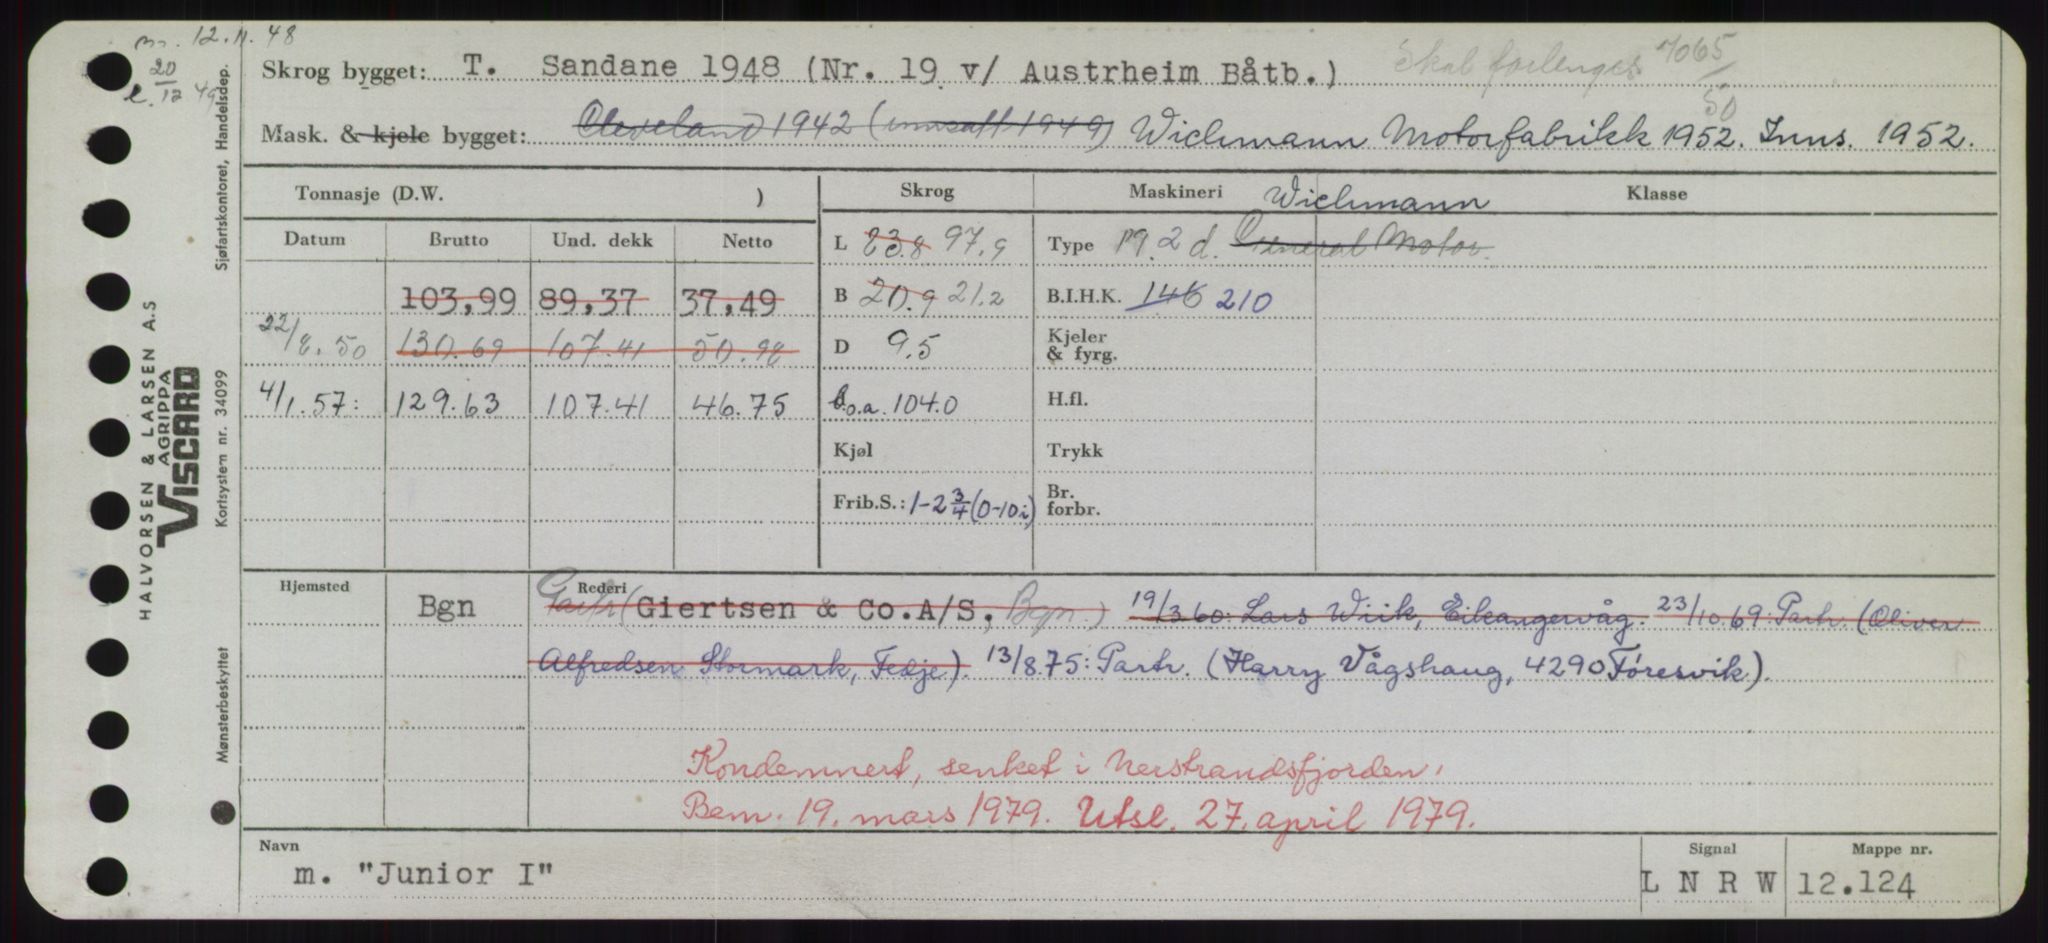 m. 12.11.48
20
12 49
Skrog bygget: T. Sandane 1948 (Nr. 19 v/ Austrheim Båtb.) Skal forlenges 7065/50
Mask. & kjele bygget: Cleveland 1942 (innsatt 1949) Wichmann Motorfabrikk 1952. Inns. 1952.
Tonnasje (D.W. ) Skrog Maskineri Wichmann Klasse
Datum Brutto Und. dekk Netto L 83.8 97,9 Type 2 d. General Motor.
103,99 89,37 37,49 B 20.9 21.2 B.I.H.K. 146 210
22/8.50 130.69 107.41 50.98 D 9,5 Kjeler & fyrg.
4/1.57: 129.63 107.41 46.75 l.o.a. 104.0 H.fl.
Kjøl Trykk
Frib.S.: 1-2 3/4 (0-10i) Br. forbr.
Hjemsted Rederi
Bgn Partr (Giertsen & Co.A/S, Bgn.) 19/3 60: Lars Wiik, Eikangervåg. 23/10.69: Partr. (Oliver
Alfredsen Stormark, Fedje). 13/8.75: Partr. (Harry Vågshaug, 4290 Føresvik).
Kondemnert, senket i Nerstrandsfjorden,
Bem. 19. mars 1979. Utsl. 27. april 1979.
Navn Signal Mappe nr.
m. "Junior I" L N R W 12.124
Sjøfartskontoret, Handelsdep.
HALVORSEN & LARSEN A.S
AGRIPPA
VISCARD
Kortsystem nr. 34099
Mønsterbeskyttet